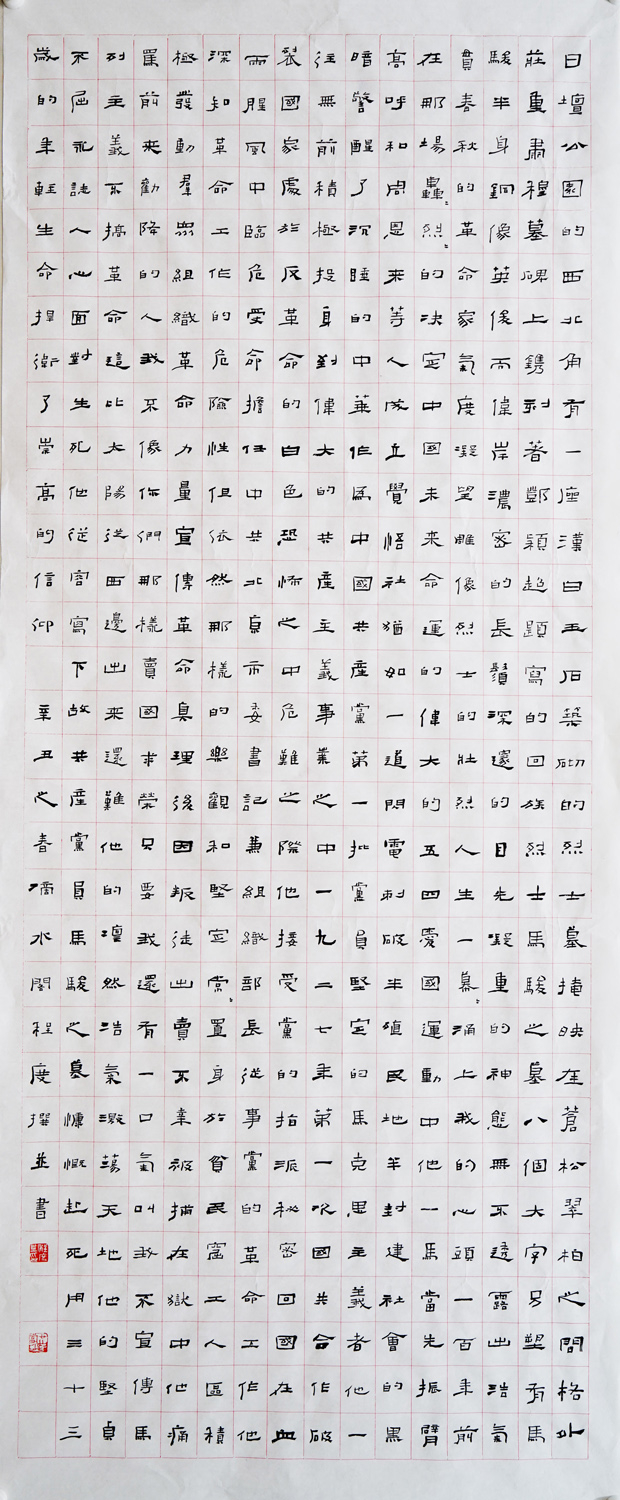 日壇公園的西北角有一座漢白玉石築砌的烈士墓掩映在蒼松翠柏之間格外
莊重肅穆墓碑上鐫刻著鄧穎超題寫的回族烈士馬駿之墓八個大字另塑有馬
駿半身銅像英俊而偉岸濃密的長鬚深邃的目光凝重的神態無不透露出浩氣
貫春秋的革命家氣度凝望雕像烈士的壯烈人生一幕〻涌上我的心頭一百年前
在那場轟〻烈〻的決定中國未來命運的偉大的五四愛國運動中他一馬當先振臂
高呼和周恩來等人成立覺悟社猶如一道閃電刺破半殖民地半封建社會的黑
暗警醒了沉睡的中華作爲中國共產黨第一批黨員堅定的馬克思主義者他一
往無前積極投身到偉大的共產主義事業之中一九二七年第一次國共合作破
裂國家處於反革命的白色恐怖之中危難之際他接受黨的指派秘密回國在血
雨腥風中臨危受命擔任中共北京市委書記兼組織部長從事黨的革命工作他
深知革命工作的危險性但依然那樣的樂觀和堅定常〻置身於貧民窟工人區積
極發動羣眾組織革命力量宣傳革命真理後因叛徒出賣不幸被捕在獄中他痛
罵前來勸降的人我不像你們那樣賣國求榮只要我還有一口氣叫我不宣傳馬
列主義不搞革命這比太陽從西邊出來還難他的凜然浩氣激蕩天地他的堅貞
不屈永誌人心面對生死他從容寫下故共產黨員馬駿之墓慷慨赴死用三十三
歲的年輕生命捍衛了崇高的信仰 辛丑之春滴水閣程度撰並書